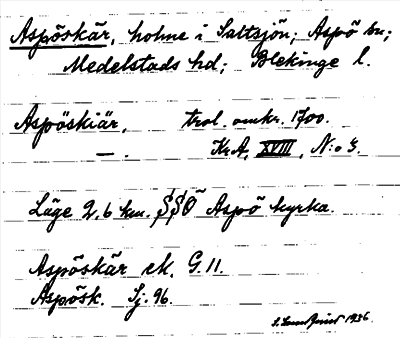 Aspöskär, holme i Saltsjön; Aspö sn;
Medelstads hd; Blekinge l.
Aspöskiär, trol. omkr. 1700.
— . KrA, XVIII, N:o 3.
Läge 2,6 km. SSO Aspö kyrka.
Aspöskär ek. G. 11.
Aspösk. Sj. 96.
1936.